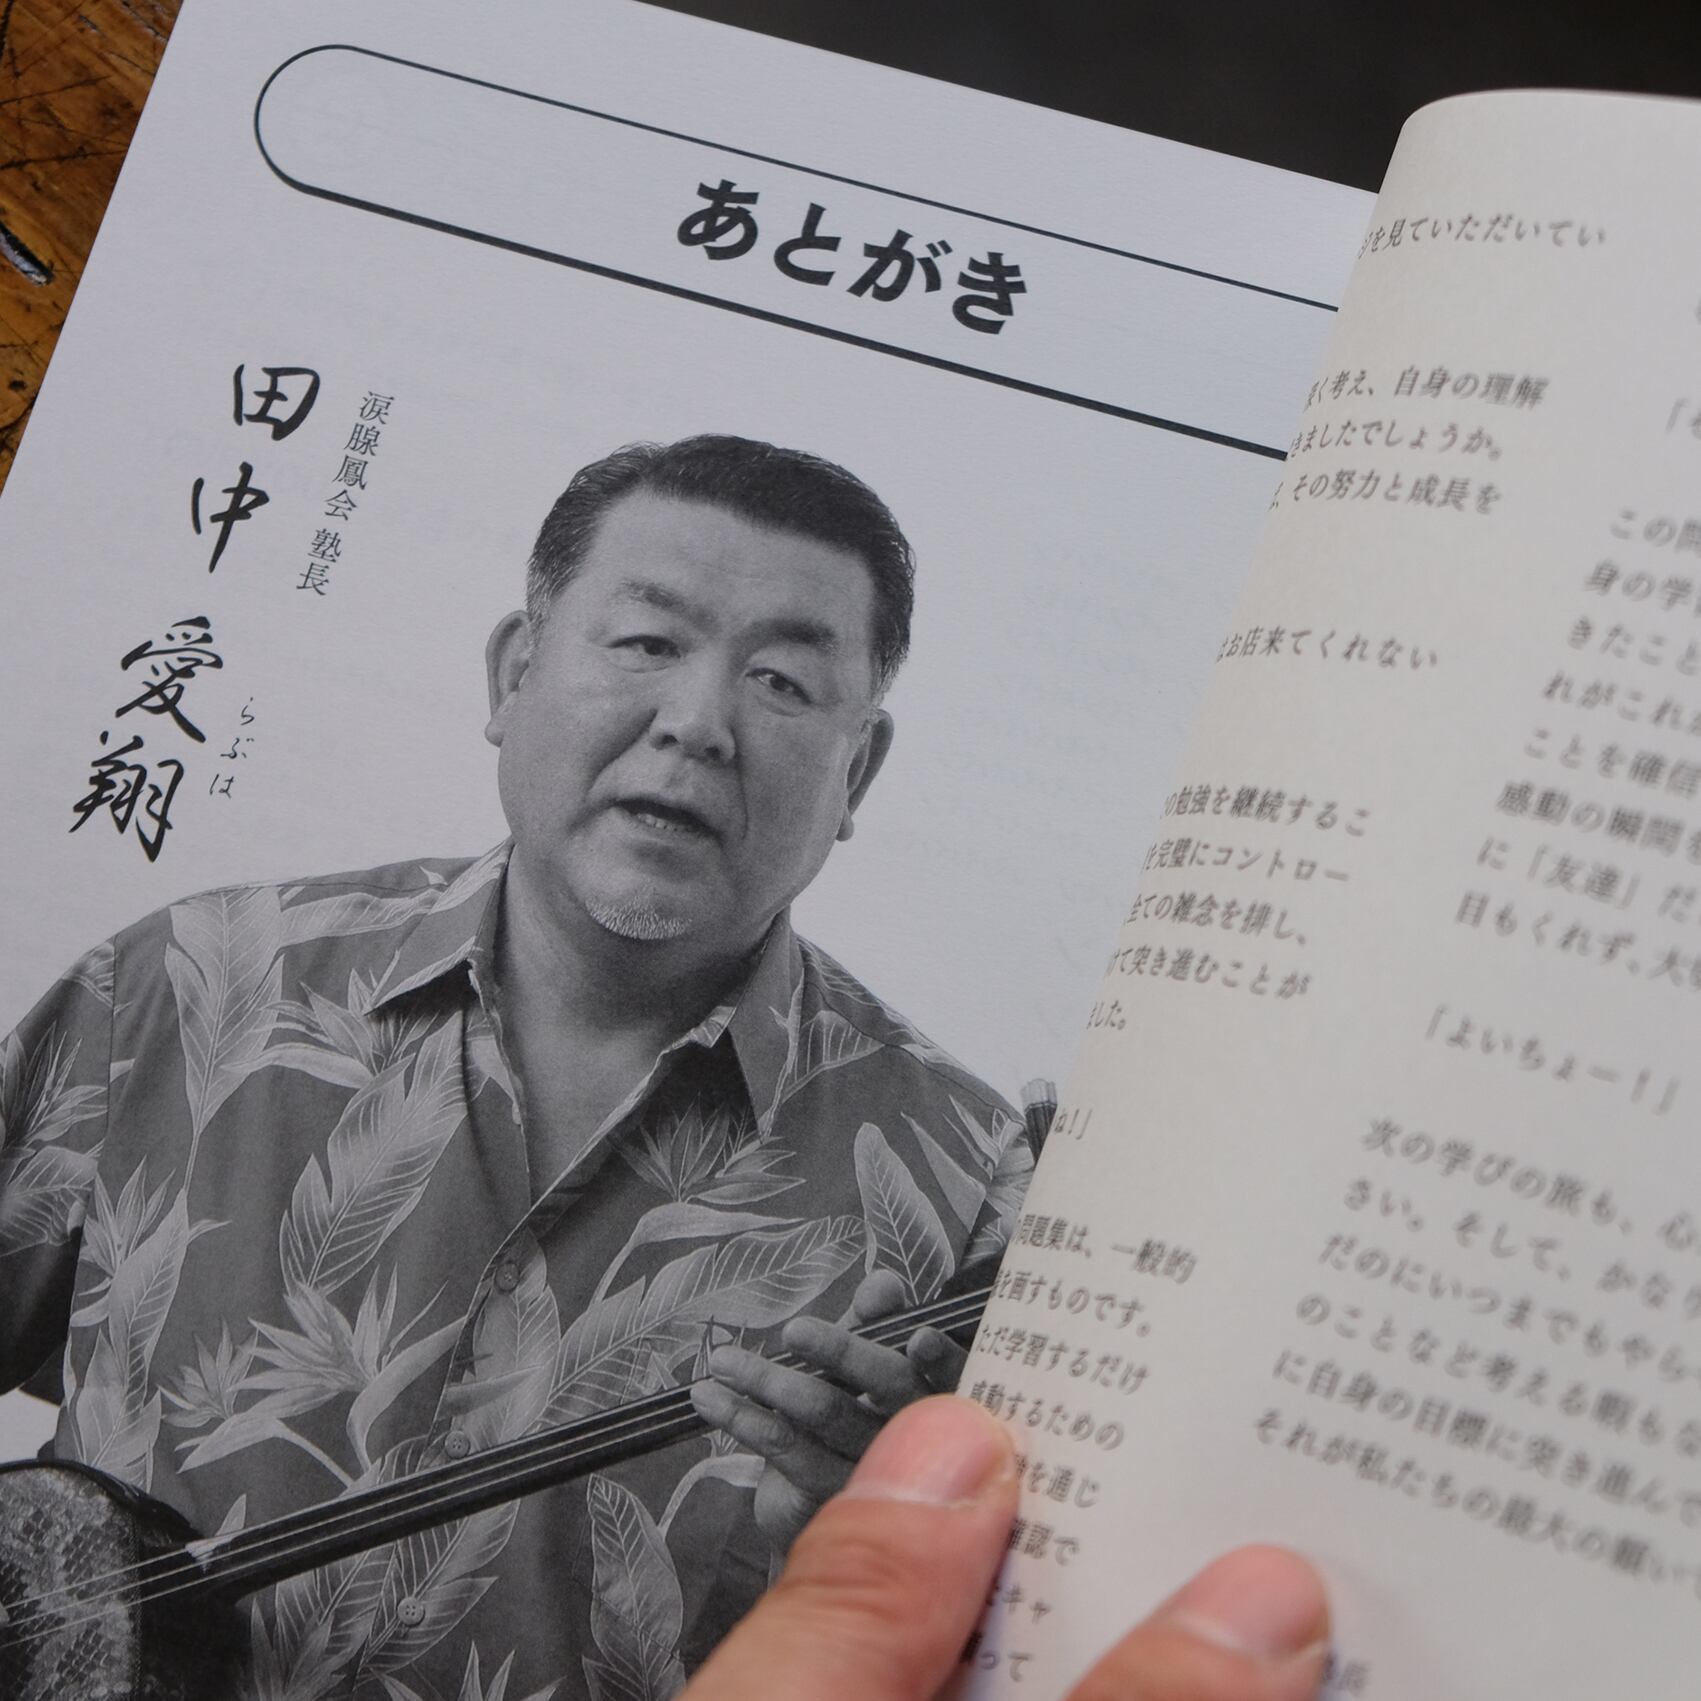 あとがき
涙腺鳳会 塾長
田中 愛翔
らぶは
を見ていただいてい
く考え、自身の理解
きましたでしょうか。
その努力と成長を
お店来てくれない
の勉強を継続するこ
を完璧にコントロー
全ての雑念を排し、
けて突き進むことが
ました。
ね！」
問題集は、一般的
を画すものです。
ただ学習するだけ
感動するための
を通じ
確認で
キャ
って
この問
身の学
きたこと
れがこれ
ことを確信
感動の瞬間を
に「友達」だ
目もくれず、大
「よいちょー！」
次の学びの旅も、心
さい。そして、かなり
だのにいつまでもやら
のことなど考える暇もな
に自身の目標に突き進んで
それが私たちの最大の願い